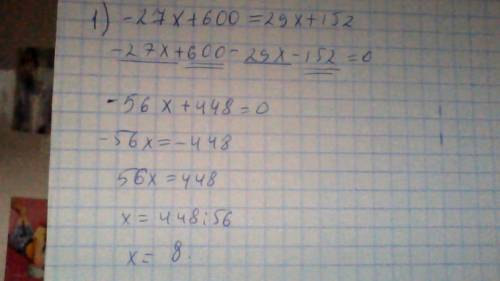 1) -27x+600=29x+152
-27x+600-29x-152=0
-56x+448=0
-56x=-448
56x=448
x=448:56
x= 8.